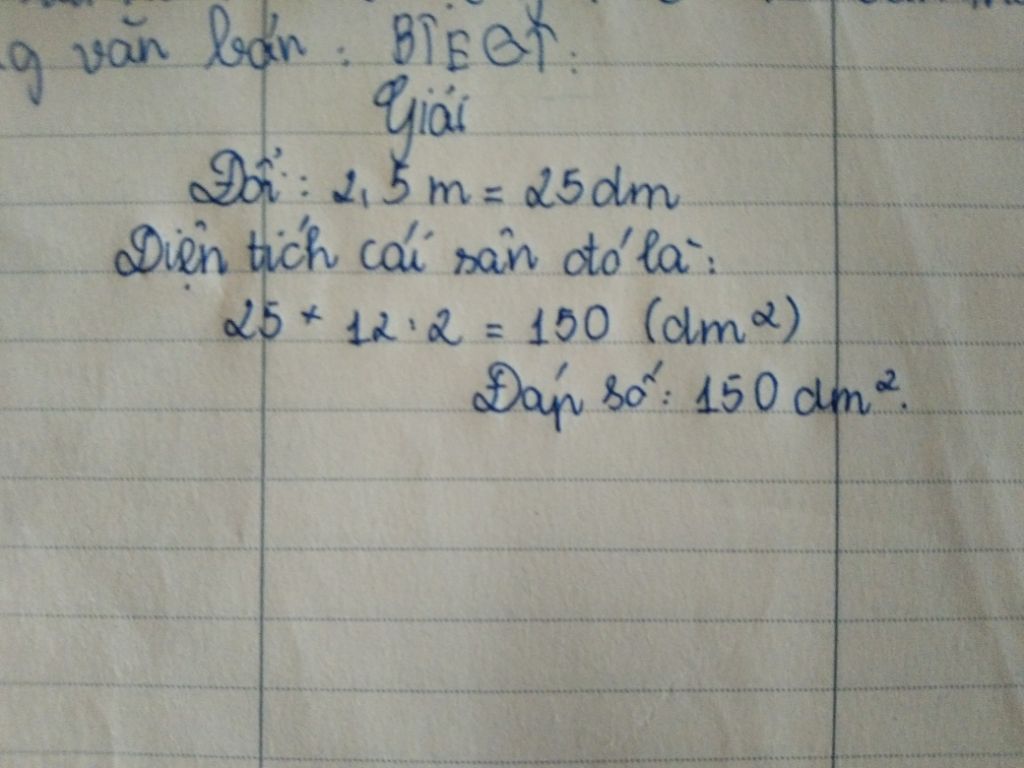 g văn bản : BTEGT.
Giải
Đổi : 2,5 m = 25 dm
Diện tích cái sân đó là :
25 × 12 : 2 = 150 (dm²)
Đáp số : 150 dm².